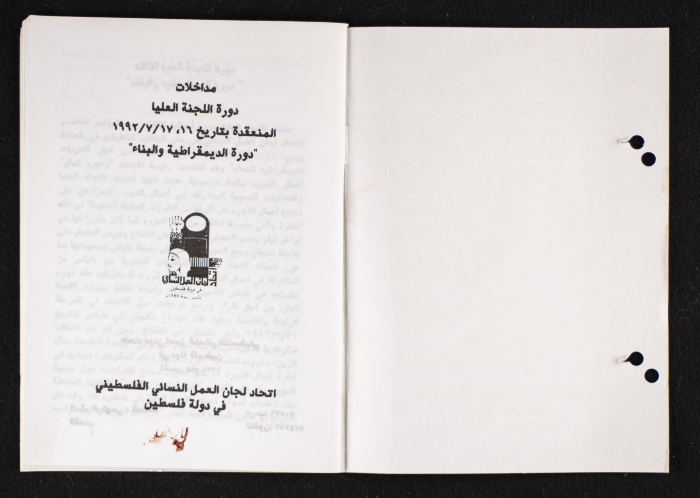 مداخلات
دورة اللجنة العليا
المنعقدة بتاريخ ١٦، ١٧/٧/١٩٩٢
"دورة الديمقراطية والبناء"
اتحاد لجان العمل النسائي
في دولة فلسطين
اتحاد لجان العمل النسائي الفلسطيني
في دولة فلسطين